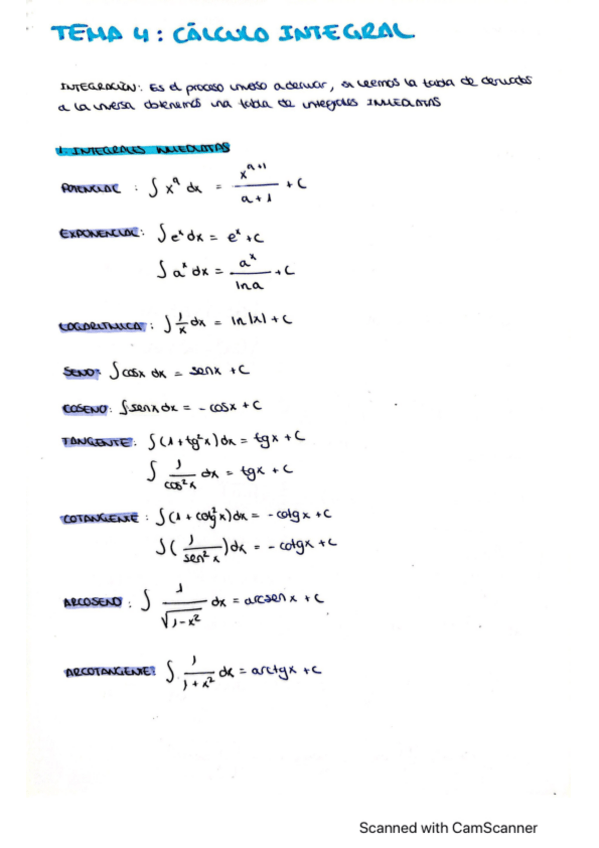 TEMA 4: CÁLCULO INTEGRAL
INTEGRACIÓN: Es el proceso inverso a derivar, si leemos la tabla de derivadas
a la inversa obtenemos una tabla de integrales INMEDIATAS
1. INTEGRALES INMEDIATAS
POTENCIAL : ∫ x^a dx = x^(a+1) / (a+1) + C
EXPONENCIAL: ∫ e^x dx = e^x + C
∫ a^x dx = a^x / ln a + C
LOGARITMICA: ∫ 1/x dx = ln|x| + C
SENO: ∫ cosx dx = senx + C
COSENO: ∫ senx dx = - cosx + C
TANGENTE: ∫ (1 + tg²x) dx = tgx + C
∫ 1/cos²x dx = tgx + C
COTANGENTE : ∫ (1 + cotg²x) dx = - cotgx + C
∫ (1/sen²x) dx = - cotgx + C
ARCOSENO : ∫ 1/√(1-x²) dx = arcsen x + C
ARCOTANGENTE: ∫ 1/(1+x²) dx = arctgx + C
Scanned with CamScanner